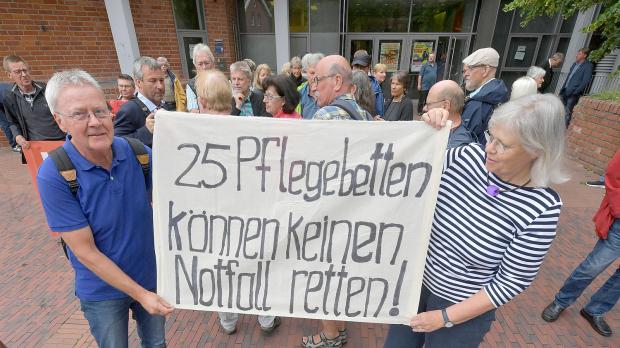 25 Pflegebetten
können keinen
Notfall retten!